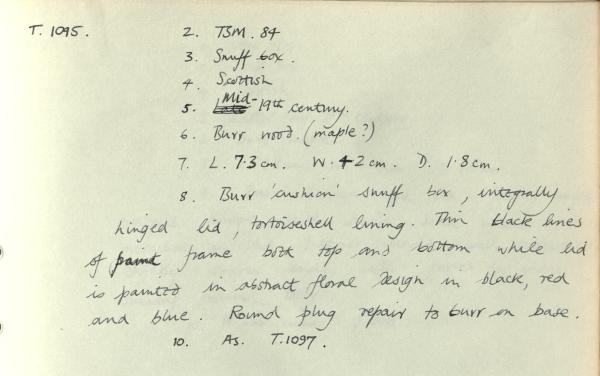 T. 1095. 2. TSM. 84
3. Snuff box.
4. Scottish
5. Mid- 19th century.
6. Burr wood. (maple?)
7. L. 7.3cm. W. 4.2cm. D. 1.8cm.
8. Burr 'cushion' snuff box, integrally
hinged lid, tortoiseshell lining. Thin black lines
of paint frame both top and bottom while lid
is painted in abstract floral design in black, red
and blue. Round plug repair to burr on base.
10. As. T.1097.